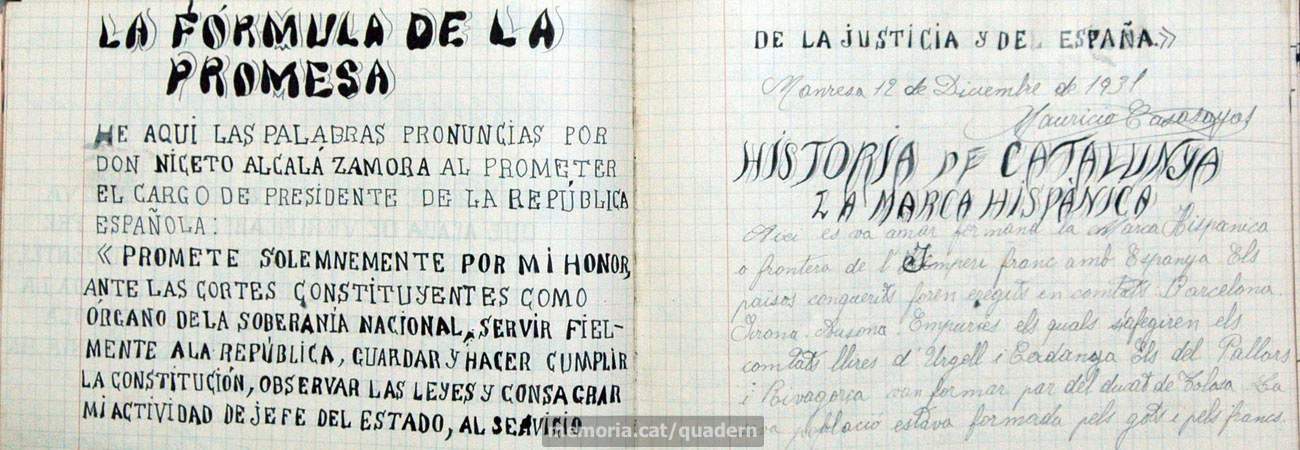 LA FÓRMULA DE LA
PROMESA
HE AQUI LAS PALABRAS PRONUNCIAS POR
DON NICETO ALCALÁ ZAMORA AL PROMETER
EL CARGO DE PRESIDENTE DE LA REPÚBLICA
ESPAÑOLA:
« PROMETE SOLEMNEMENTE POR MI HONOR,
ANTE LAS CORTES CONSTITUYENTES COMO
ÓRGANO DE LA SOBERANÍA NACIONAL, SERVIR FIEL-
MENTE A LA REPÚBLICA, GUARDAR Y HACER CUMPLIR
LA CONSTITUCIÓN, OBSERVAR LAS LEYES Y CONSAGRAR
MI ACTIVIDAD DE JEFE DEL ESTADO, AL SERVICIO
DE LA JUSTICIA Y DEL ESPAÑA.»
Manresa 12 de Diciembre de 1931
Mauricio Casasayas
HISTORIA DE CATALUNYA
LA MARCA HISPÀNICA
Aici es va anar formand la Marca Hispanica
o frontera de l'Imperi franc amb Espanya Els
països conquerits foren eregits en comtats Barcelona
Girona Ausona Empuries els quals s'afegiren els
comtats lliures d'Urgell i Cerdanya Els del Pallars
i Rivagorça van formar par del ducat de Tolosa La
població estava formada pels gots i pels francs.
memoria.cat/quadern